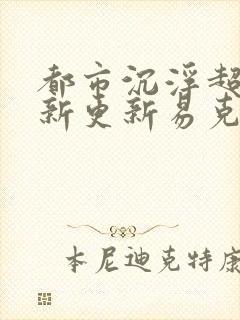 都市沉浮超
新更新易克
本尼迪克特康